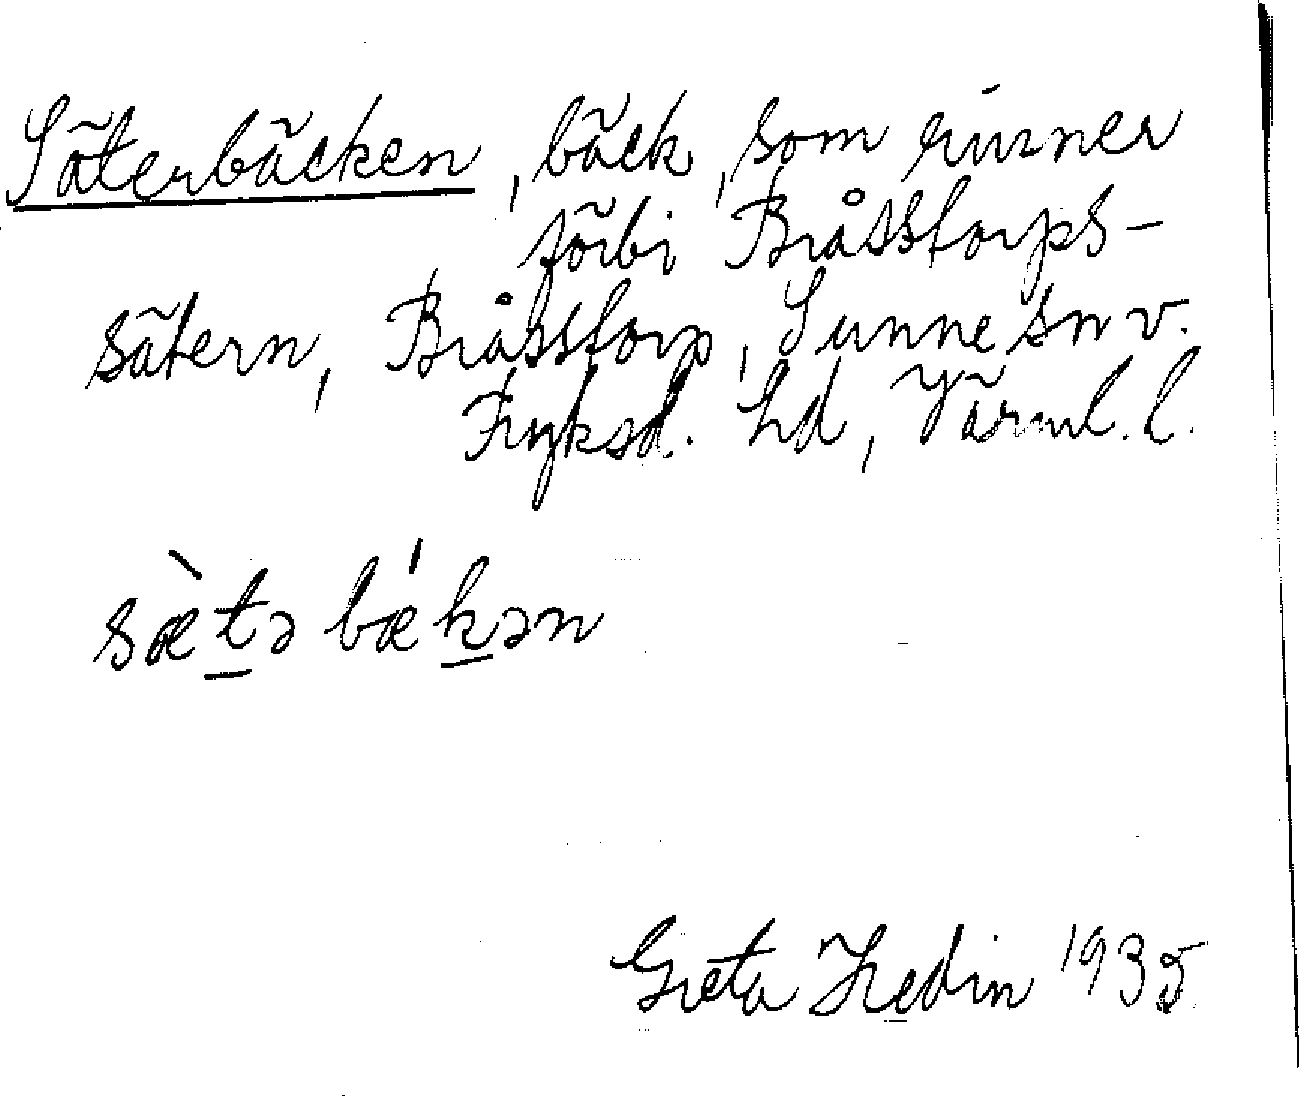 Säterbäcken, bäck, som rinner
förbi Bråsstorps-
sätern, Bråsstorp, Sunne sn v.
Fryksd. hd, Värml. l.
sæ̀tə bækən
Greta Hedin 1935